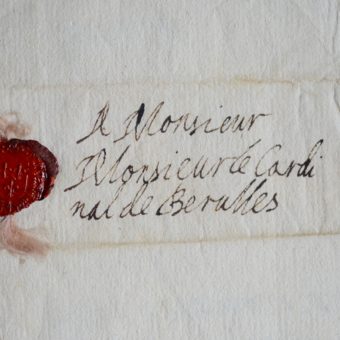 A Monsieur
Monsieur le Cardi
nal de Berulles